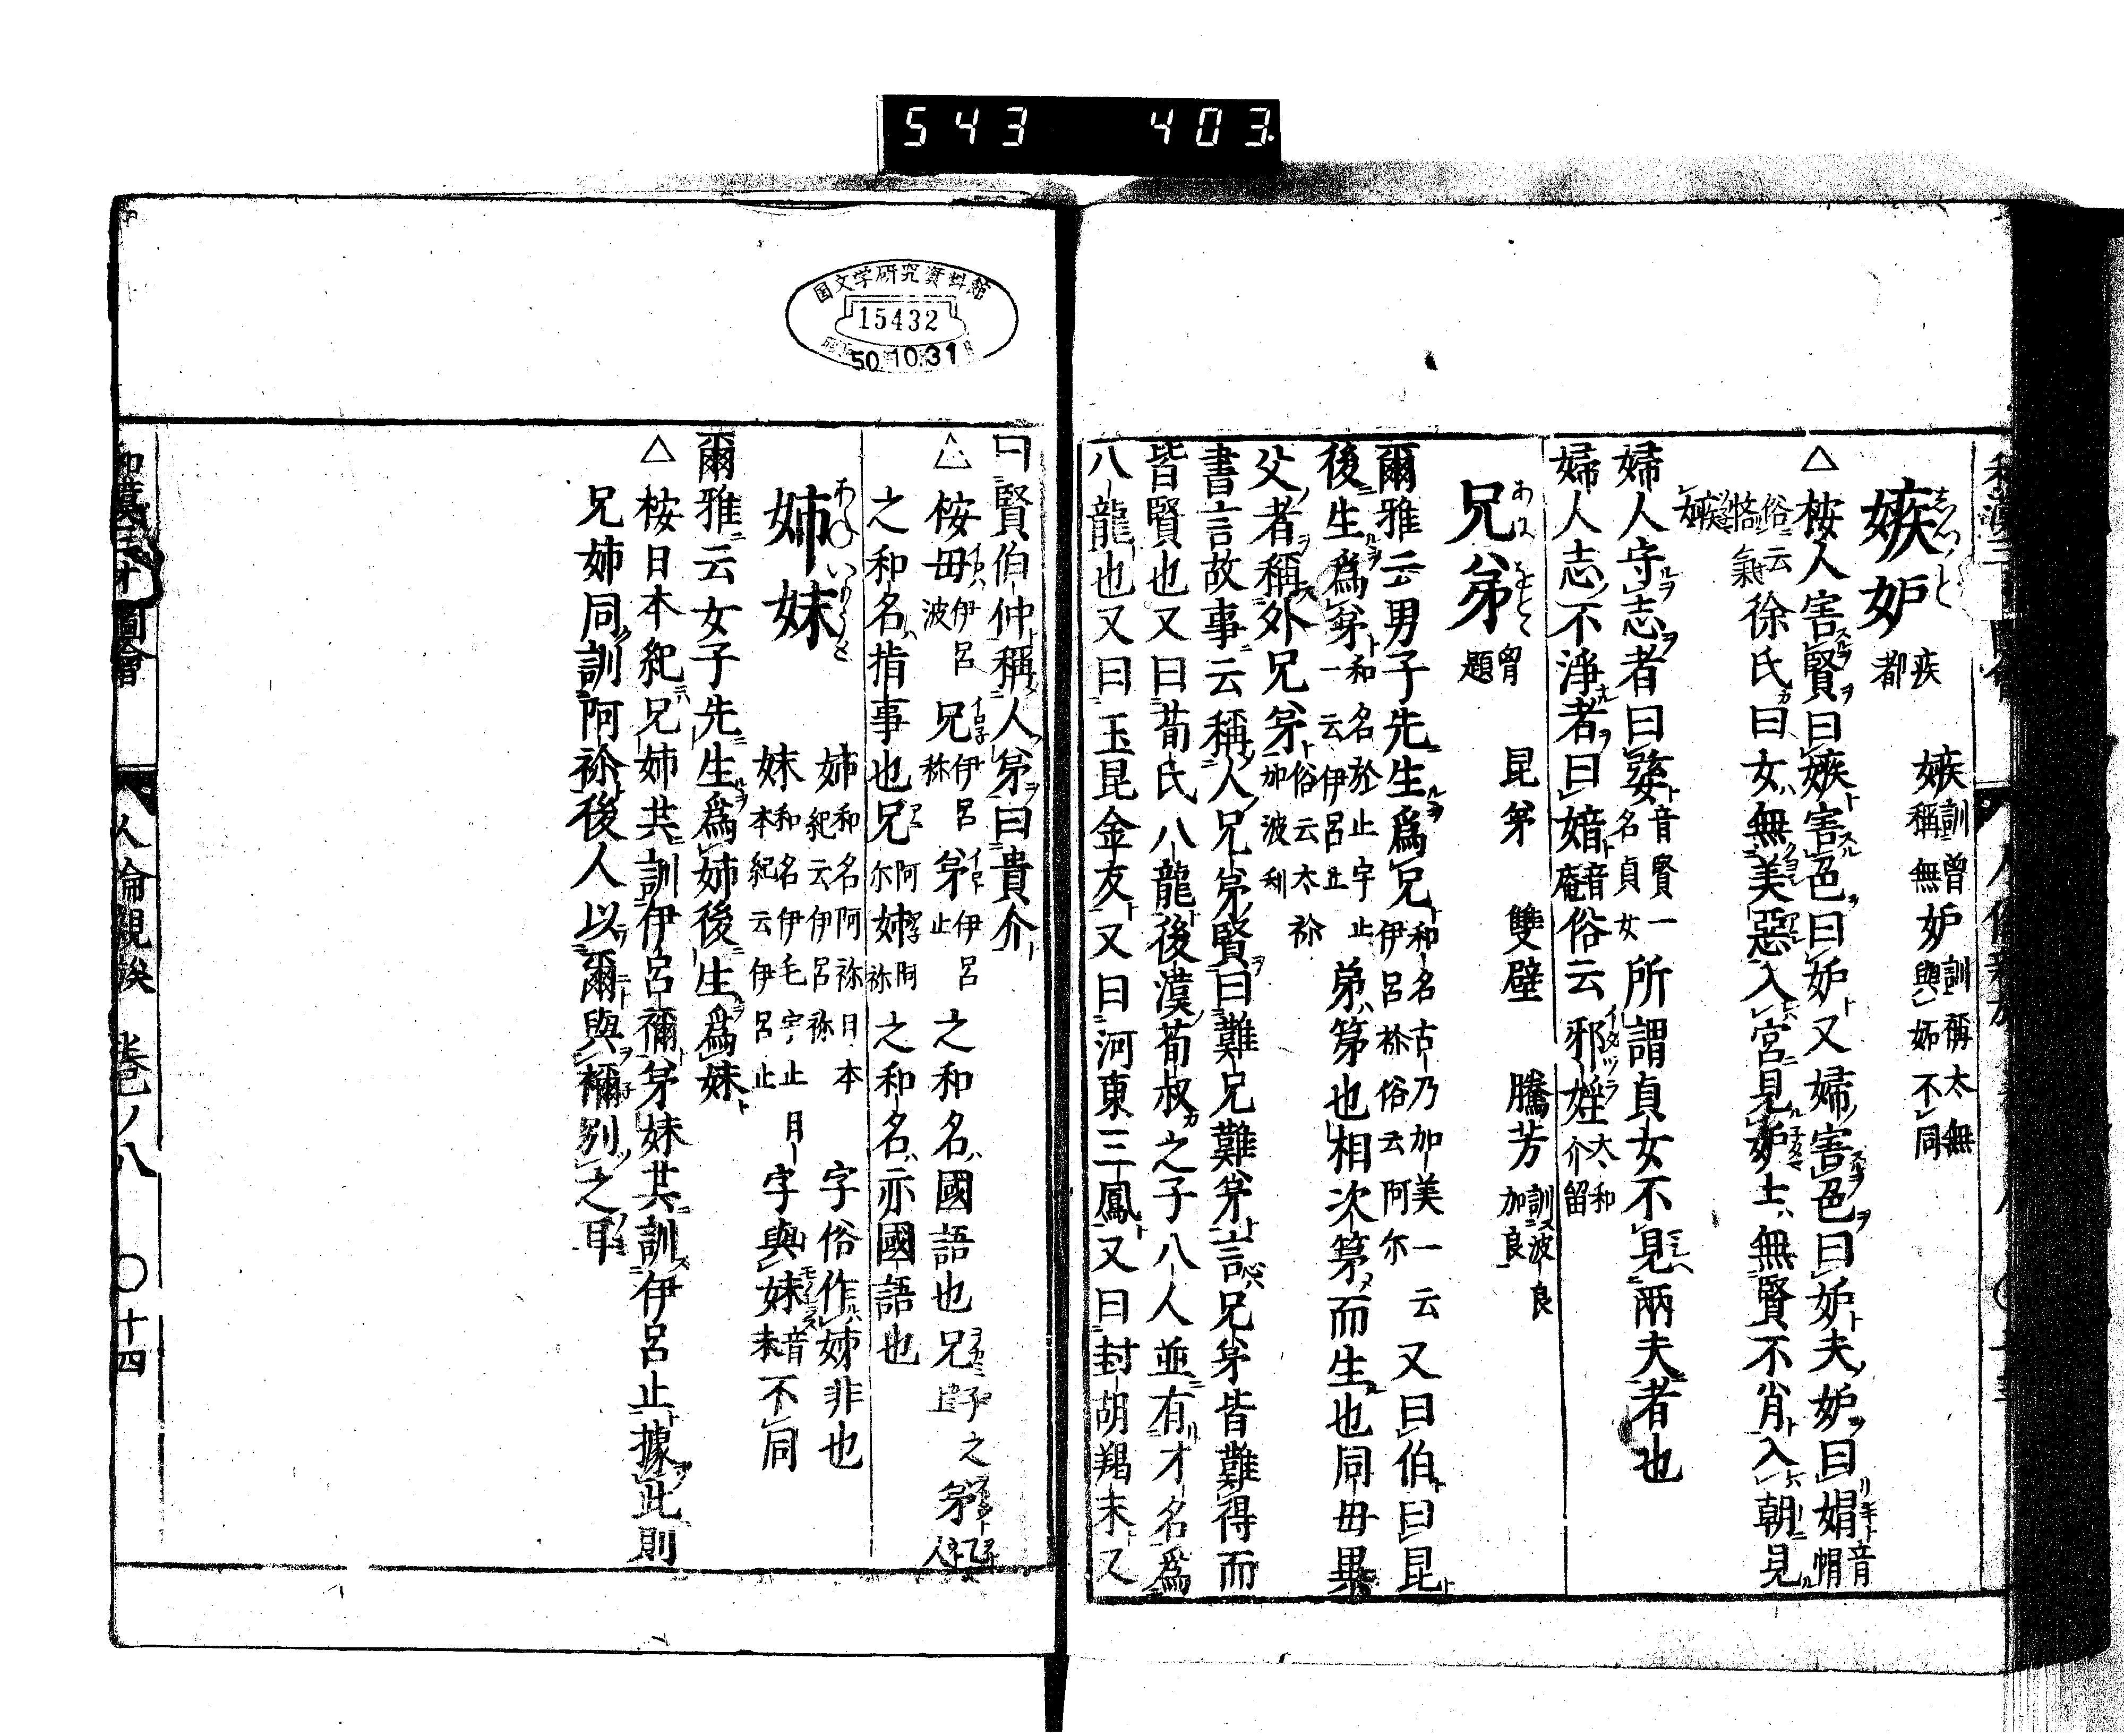 543 403
嫉妬 疾都 嫉 訓曾稱無 妬 訓稱太無與妬不同
△桉人害賢曰嫉害色曰妬又婦害色曰妬夫妬曰娟 音帽
俗云悋氣 徐氏曰女無美惡入宮見妬士無賢不肖入朝見
嫉
婦人守志者曰婜 音賢一名貞女 所謂貞女不見兩夫者也
婦人志不淨者曰婄 音菴 俗云邪婬 太和介留
兄弟 曾題 昆弟 雙璧 騰芳 訓波良加良
爾雅云男子先生爲兄 和名古乃加美一云伊呂祢俗云阿尔 又曰伯曰昆
後生爲弟 和名於止宇止一云伊呂止 弟第也相次第而生也同母異
父者稱外兄弟 俗云太祢加波利
書言故事云稱人兄弟賢曰難兄難弟言兄弟皆難得而
皆賢也又曰荀氏八龍後漢荀叔之子八人並有才名爲
八龍也又曰玉昆金友又曰河東三鳳又曰封胡羯末又
国文学研究資料館
15432
50.10.31
曰賢伯仲稱人弟曰貴介
△桉母 伊呂波 兄 伊呂祢 弟 伊呂止 之和名國語也兄 子之弟
之和名指事也兄 阿尔 姉 阿祢 之和名亦國語也
姉妹 姉 和名阿祢日本紀云伊呂祢 字俗作姊非也
妹 和名伊毛宇止日本紀云伊呂止 字與妹 音末 不同
爾雅云女子先生爲姉後生爲妹
△桉日本紀兄姉共訓伊呂禰弟妹共訓伊呂止據此則
兄姉同訓阿祢後人以爾與禰別之耳
人倫親族 卷ノ八 〇十四